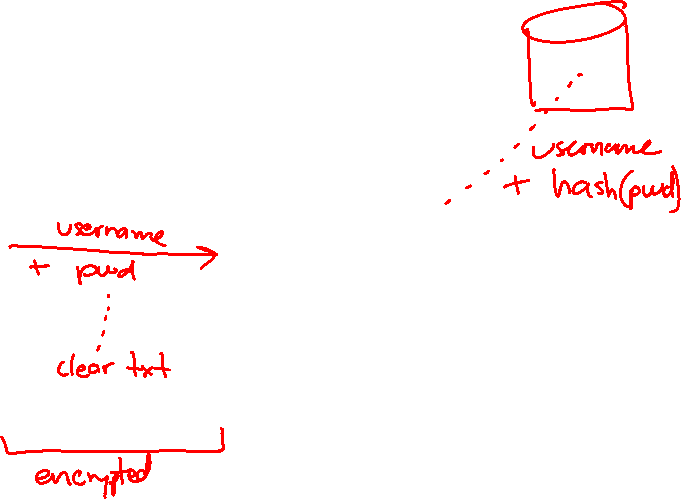 username
+ hash(pwd)
username
+ pwd
clear txt
encrypted